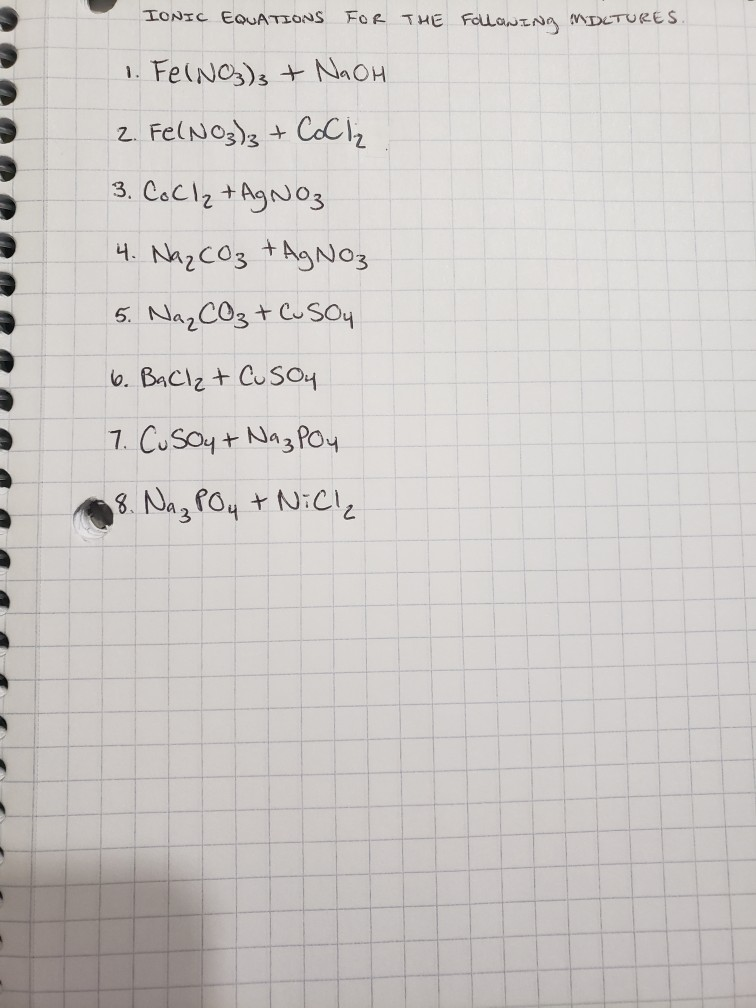 IONIC EQUATIONS FOR THE FOLLOWING MIXTURES.
1. Fe(NO3)3 + NaOH
2. Fe(NO3)3 + CoCl2
3. CoCl2 + AgNO3
4. Na2CO3 + AgNO3
5. Na2CO3 + CuSO4
6. BaCl2 + CuSO4
7. CuSO4 + Na3PO4
8. Na3PO4 + NiCl2